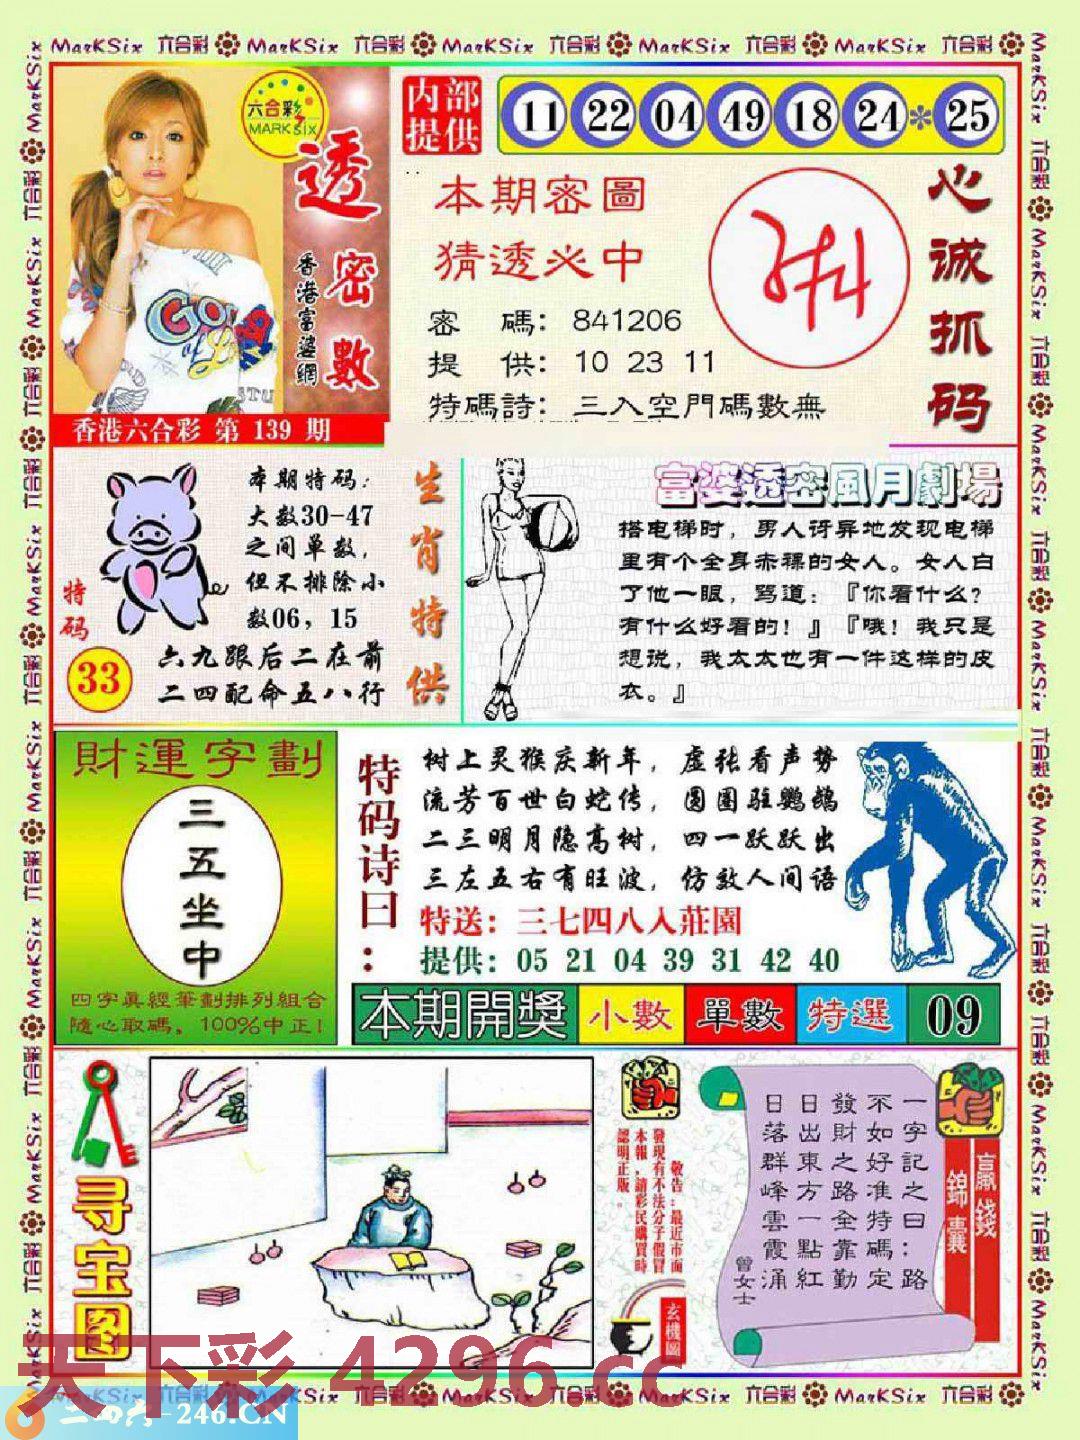 MarKSix 六合彩 MarKSix 六合彩 MarKSix 六合彩 MarKSix 六合彩 MarKSix 六合彩
六合彩
MARK SIX
透密數
香港富婆網
香港六合彩 第 139 期
内部
提供
11 22 04 49 18 24 * 25
本期密圖
猜透必中
密 碼：841206
提 供：10 23 11
特碼詩：三入空門碼數無
心诚抓码
本期特码：
大数30-47
之间单数，
但不排除小
数06，15
特码
33
六九跟后二在前
二四配命五八行
生肖特供
富婆透密風月劇場
搭电梯时，男人讶异地发现电梯
里有个全身赤裸的女人。女人白
了他一眼，骂道：『你看什么？
有什么好看的！』『哦！我只是
想说，我太太也有一件这样的皮
衣。』
財運字劃
三五坐中
四字真經筆劃排列組合
隨心取碼，100%中正！
特码诗曰：
树上灵猴庆新年，虚张看声势
流芳百世白蛇传，圆圈驻鹦鹉
二三明月隐高树，四一跃跃出
三左五右有旺波，仿效人间语
特送：三七四八入莊園
提供：05 21 04 39 31 42 40
本期開獎 小數 單數 特選 09
寻宝图
敬告：最近市面
發現有不法分子假冒
本報，請彩民購買時
認明正版。
玄機圖
一字記之曰：路
不如好准特碼定
發財之路全靠勤
日出東方一點紅
日落群峰雲霞涌
曾女士
贏錢
錦囊
天下彩 4296.cc
246.CN
MarKSix 六合彩 MarKSix 六合彩 MarKSix 六合彩 MarKSix 六合彩